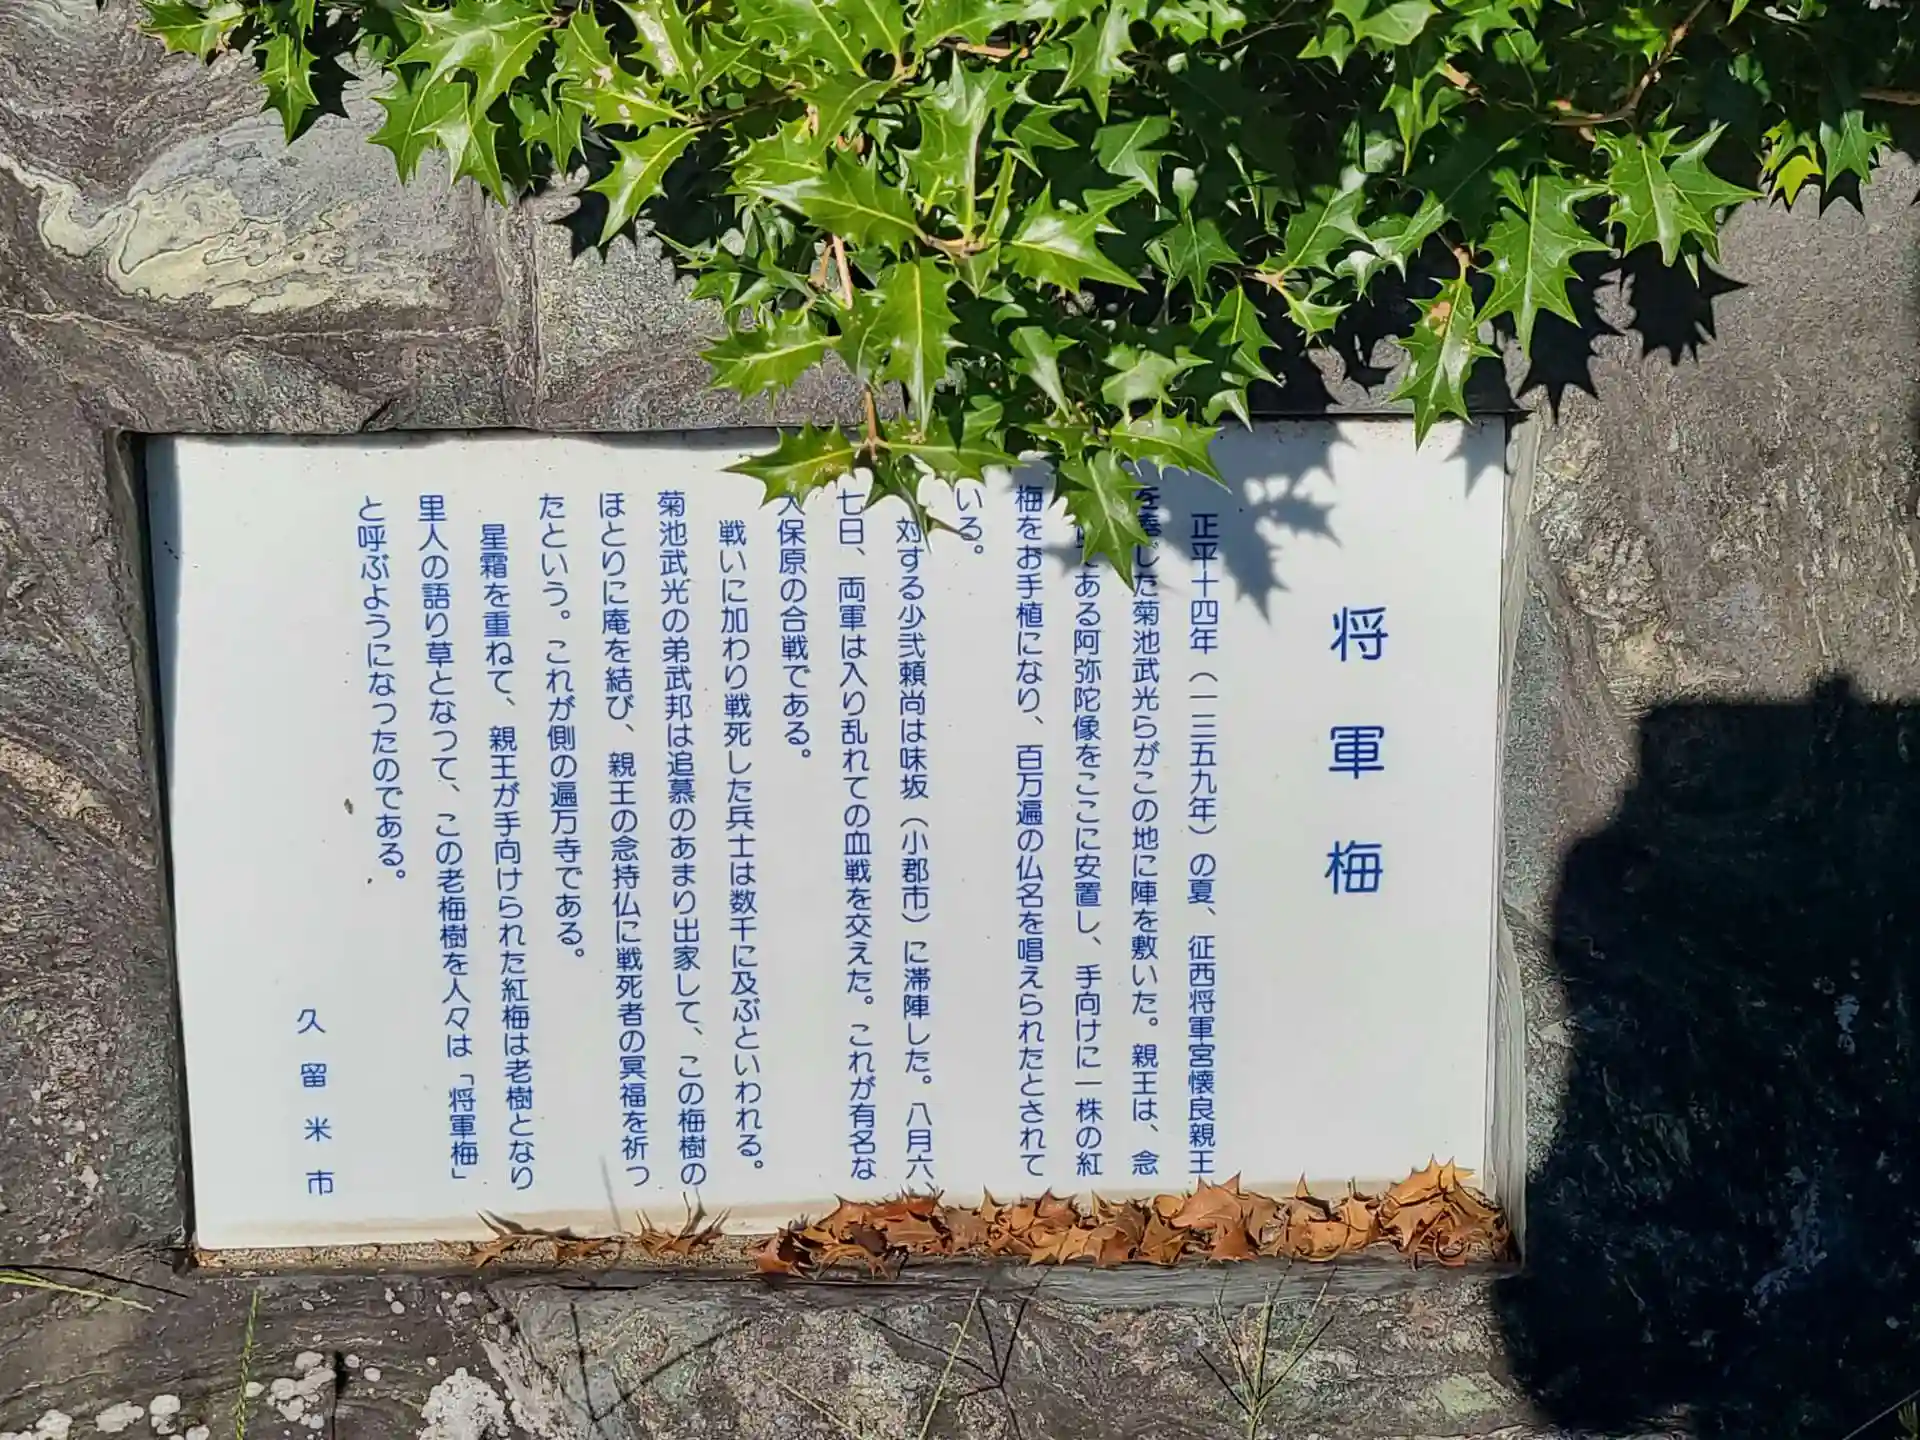 将軍梅
正平十四年（一三五九年）の夏、征西将軍宮懐良親王
を奉じた菊池武光らがこの地に陣を敷いた。親王は、念
である阿弥陀像をここに安置し、手向けに一株の紅
梅をお手植になり、百万遍の仏名を唱えられたとされて
いる。
対する少弐頼尚は味坂（小郡市）に滞陣した。八月六、
七日、両軍は入り乱れての血戦を交えた。これが有名な
大保原の合戦である。
戦いに加わり戦死した兵士は数千に及ぶといわれる。
菊池武光の弟武邦は追慕のあまり出家して、この梅樹の
ほとりに庵を結び、親王の念持仏に戦死者の冥福を祈っ
たという。これが側の遍万寺である。
星霜を重ねて、親王が手向けられた紅梅は老樹となり
里人の語り草となつて、この老梅樹を人々は「将軍梅」
と呼ぶようになったのである。
久留米市